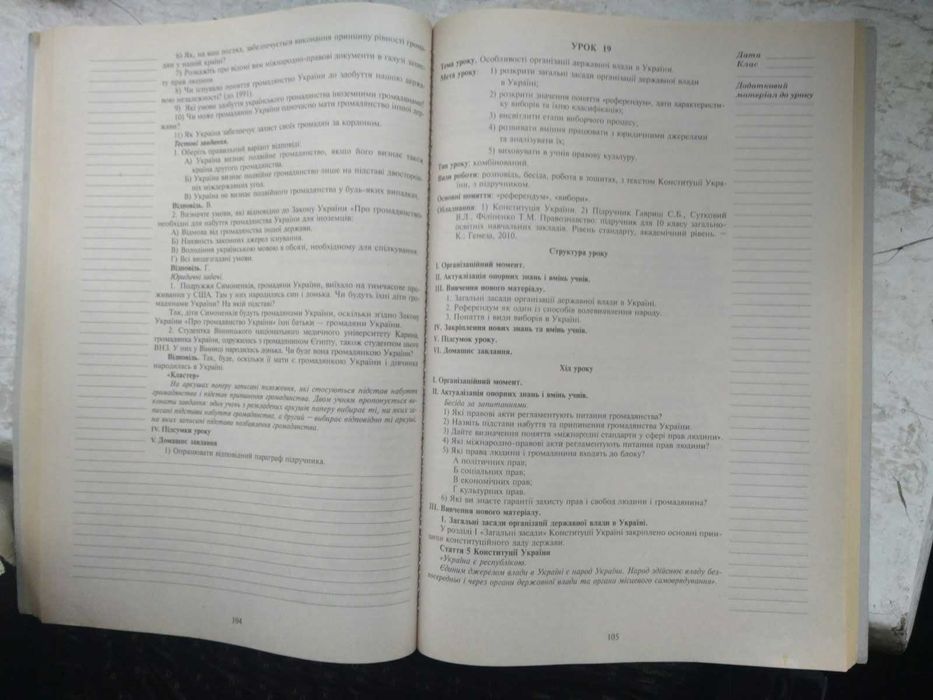 6) Як, на ваш погляд, забезпечується виконання принципу рівності грома-
дян у нашій країні?
7) Розкажіть про відомі вам міжнародно-правові документи в галузі захис-
ту прав людини.
8) Чи існувало поняття громадянство України до здобуття нашою держа-
вою незалежності? (до 1991).
9) Які умови здобуття українського громадянства іноземними громадянами?
10) Чи може громадянин України одночасно мати громадянство іншої дер-
жави?
11) Як Україна забезпечує захист своїх громадян за кордоном.
Тестові завдання.
1. Оберіть правильний варіант відповіді:
А) Україна визнає подвійне громадянство, якщо його визнає також
країна другого громадянства.
Б) Україна визнає подвійне громадянство лише на підставі двосторон-
ніх міждержавних угод.
В) Україна не визнає подвійного громадянства у будь-яких випадках.
Відповідь. В.
2. Визначте умови, які відповідно до Закону України «Про громадянство»
необхідні для набуття громадянства України для іноземців:
А) Відмова від громадянства іншої держави.
Б) Наявність законних джерел існування.
В) Володіння українською мовою в обсязі, необхідному для спілкування.
Г) Всі вищезгадані умови.
Відповідь. Г.
Юридичні задачі.
1. Подружжя Симоненків, громадяни України, виїхало на тимчасове про-
живання у США. Там у них народились син і донька. Чи будуть їхні діти гро-
мадянами України? На якій підставі?
Так, діти Симоненків будуть громадянами України, оскільки згідно Закону
України «Про громадянство України» їхні батьки — громадяни України.
2. Студентка Вінницького національного медичного університету Карина,
громадянка України, одружилась з громадянином Єгипту, також студентом цього
ВНЗ. У них у Вінниці народилась донька. Чи буде вона громадянкою України?
Відповідь. Так, буде, оскільки її мати є громадянкою України і дівчинка
народилась в Україні.
«Кластер»
На аркушах паперу записані положення, які стосуються підстав набуття
громадянства і підстав припинення громадянства. Двом учням пропонується ви-
конати завдання: один учень з розкладених аркушів паперу вибирає ті, на яких за-
писані підстави набуття громадянства, а другий — вибирає відповідно ті аркуші,
на яких записані підстави позбавлення громадянства.
IV. Підсумки уроку
V. Домашнє завдання
1) Опрацювати відповідний параграф підручника.
104
УРОК 19
Дата
Клас
Додатковий
матеріал до уроку
Тема уроку. Особливості організації державної влади в України.
Мета уроку: 1) розкрити загальні засади організації державної влади
в Україні;
2) розкрити значення поняття «референдум», дати характеристи-
ку виборів та їхню класифікацію;
3) висвітлити етапи виборчого процесу;
4) розвивати вміння працювати з юридичними джерелами
та аналізувати їх;
5) виховувати в учнів правову культуру.
Тип уроку: комбінований.
Види роботи: розповідь, бесіда, робота в зошитах, з текстом Конституції Укра-
їни, з підручником.
Основні поняття: «референдум», «вибори».
Обладнання: 1) Конституція України. 2) Підручник Гавриш С.Б., Сутковий
В.Л., Філіпенко Т.М. Правознавство: підручник для 10 класу загально-
освітніх навчальних закладів. Рівень стандарту, академічний рівень. —
К.: Генеза, 2010.
Структура уроку
I. Організаційний момент.
II. Актуалізація опорних знань і вмінь учнів.
III. Вивчення нового матеріалу.
1. Загальні засади організації державної влади в Україні.
2. Референдум як один із способів волевиявлення народу.
3. Поняття і види виборів в Україні.
IV. Закріплення нових знань та вмінь учнів.
V. Підсумок уроку.
VI. Домашнє завдання.
Хід уроку
I. Організаційний момент.
II. Актуалізація опорних знань і вмінь учнів.
Бесіда за запитаннями.
1) Які правові акти регламентують питання громадянства?
2) Назвіть підстави набуття та припинення громадянства України.
3) Дайте визначення поняття «міжнародні стандарти у сфері прав людини».
4) Які міжнародно-правові акти регламентують питання прав людини?
5) Які права людини і громадянина входять до блоку?
А політичних прав;
Б соціальних прав;
В економічних прав;
Г культурних прав.
6) Які ви знаєте гарантії захисту прав і свобод людини і громадянина?
III. Вивчення нового матеріалу.
1. Загальні засади організації державної влади в Україні.
У розділі I «Загальні засади» Конституції Україні закріплено основні прин-
ципи конституційного ладу держави.
Стаття 5 Конституції України
«Україна є республікою.
Єдиним джерелом влади в Україні є народ України. Народ здійснює владу без-
посередньо і через органи державної влади та органи місцевого самоврядування».
105